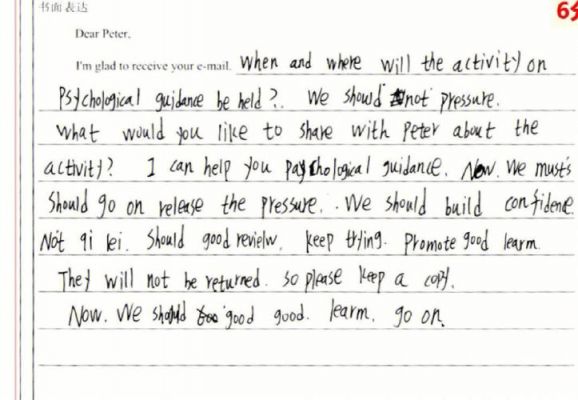 书面表达
6分
Dear Peter,
I'm glad to receive your e-mail. When and where will the activity on
Psychological guidance be held?. We should not pressure.
what would you like to share with Peter about the
activity? I can help you paychological guidance. Now. We musts
Should go on release the pressure. . We should build confidene.
Not qi lei. Should good revielw, keep trying. Promote good learm.
They will not be returned. so please keep a copy.
Now. We should good good. learm. go on.